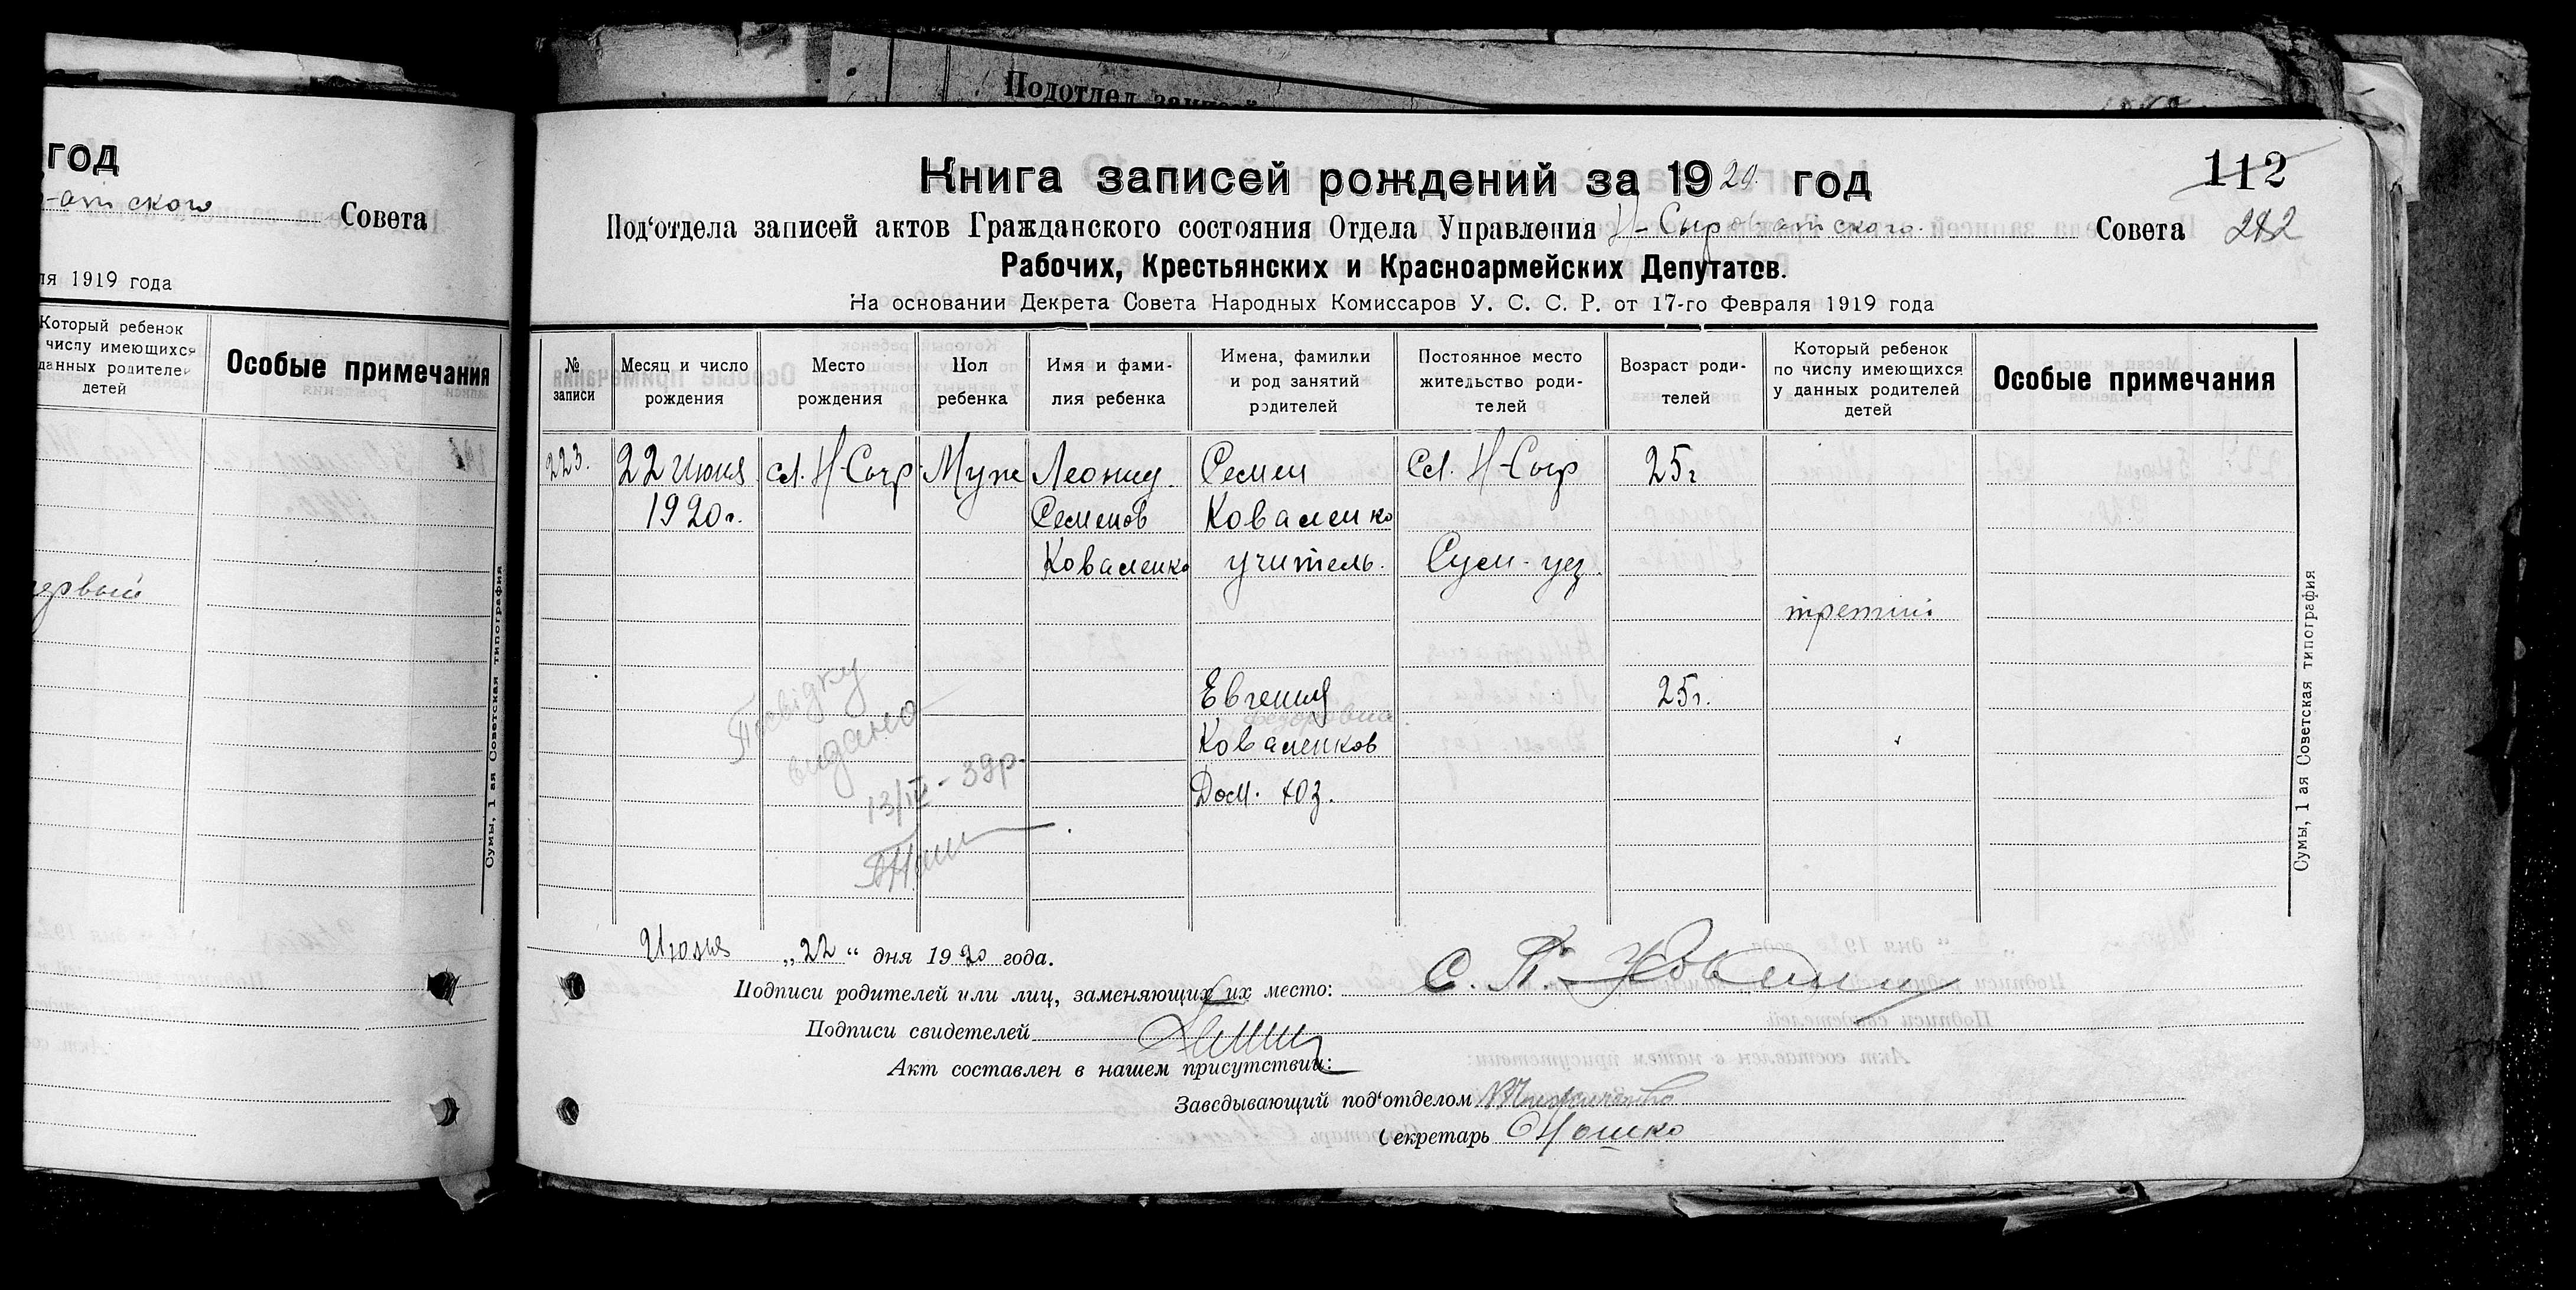 Подотдел записей
год
-атского Совета
ля 1919 года
Который ребенок
числу имеющихся
данных родителей
детей
Особые примечания
первый
Сумы, 1 ая Советская типография
112
Книга записей рождений за 1920 год
Под‘отдела записей актов Гражданского состояния Отдела Управления Н-Сыроватского Совета 282
Рабочих, Крестьянских и Красноармейских Депутатов.
На основании Декрета Совета Народных Комиссаров У. С. С. Р. от 17-го Февраля 1919 года
№ записи
Месяц и число рождения
Место рождения
Пол ребенка
Имя и фами-лия ребенка
Имена, фамилии и род занятий родителей
Постоянное место жительство роди-телей
Возраст роди-телей
Который ребенок по числу имеющихся у данных родителей детей
Особые примечания
223. 22 Июня сл. Н-Сыр Муж Леонид Семен сл. Н-Сыр 25г
1920г. Семенов Коваленко
Коваленко учитель. Сум-уез
третий
Евгения 25г.
Федоровна
Коваленков
Дом. хоз.
Посвідку
видано
13/IV-39р.
Июля „22“ дня 1920 года.
Подписи родителей или лиц, заменяющих их место: С. П. Коваленко
Подписи свидетелей
Акт составлен в нашем присутствии:
Заведывающий под‘отделом
Секретарь
Сумы, 1 ая Советская типография